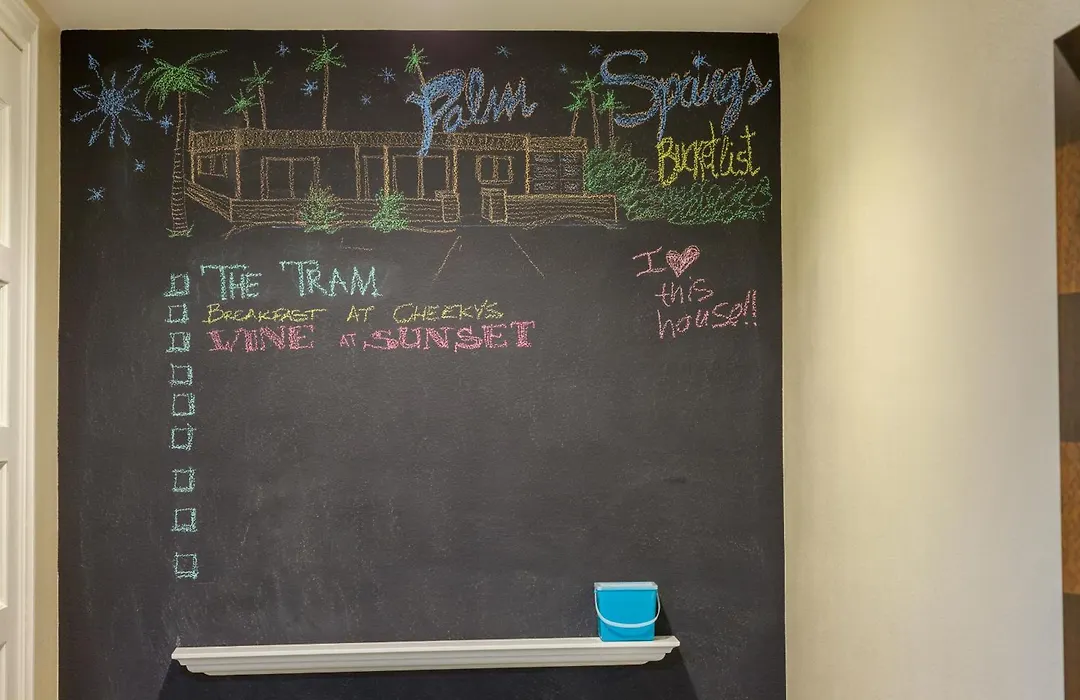 Palm Springs
Bucket list
THE TRAM
BREAKFAST AT CHEEKY'S
WINE AT SUNSET
I ♥
this
house!!